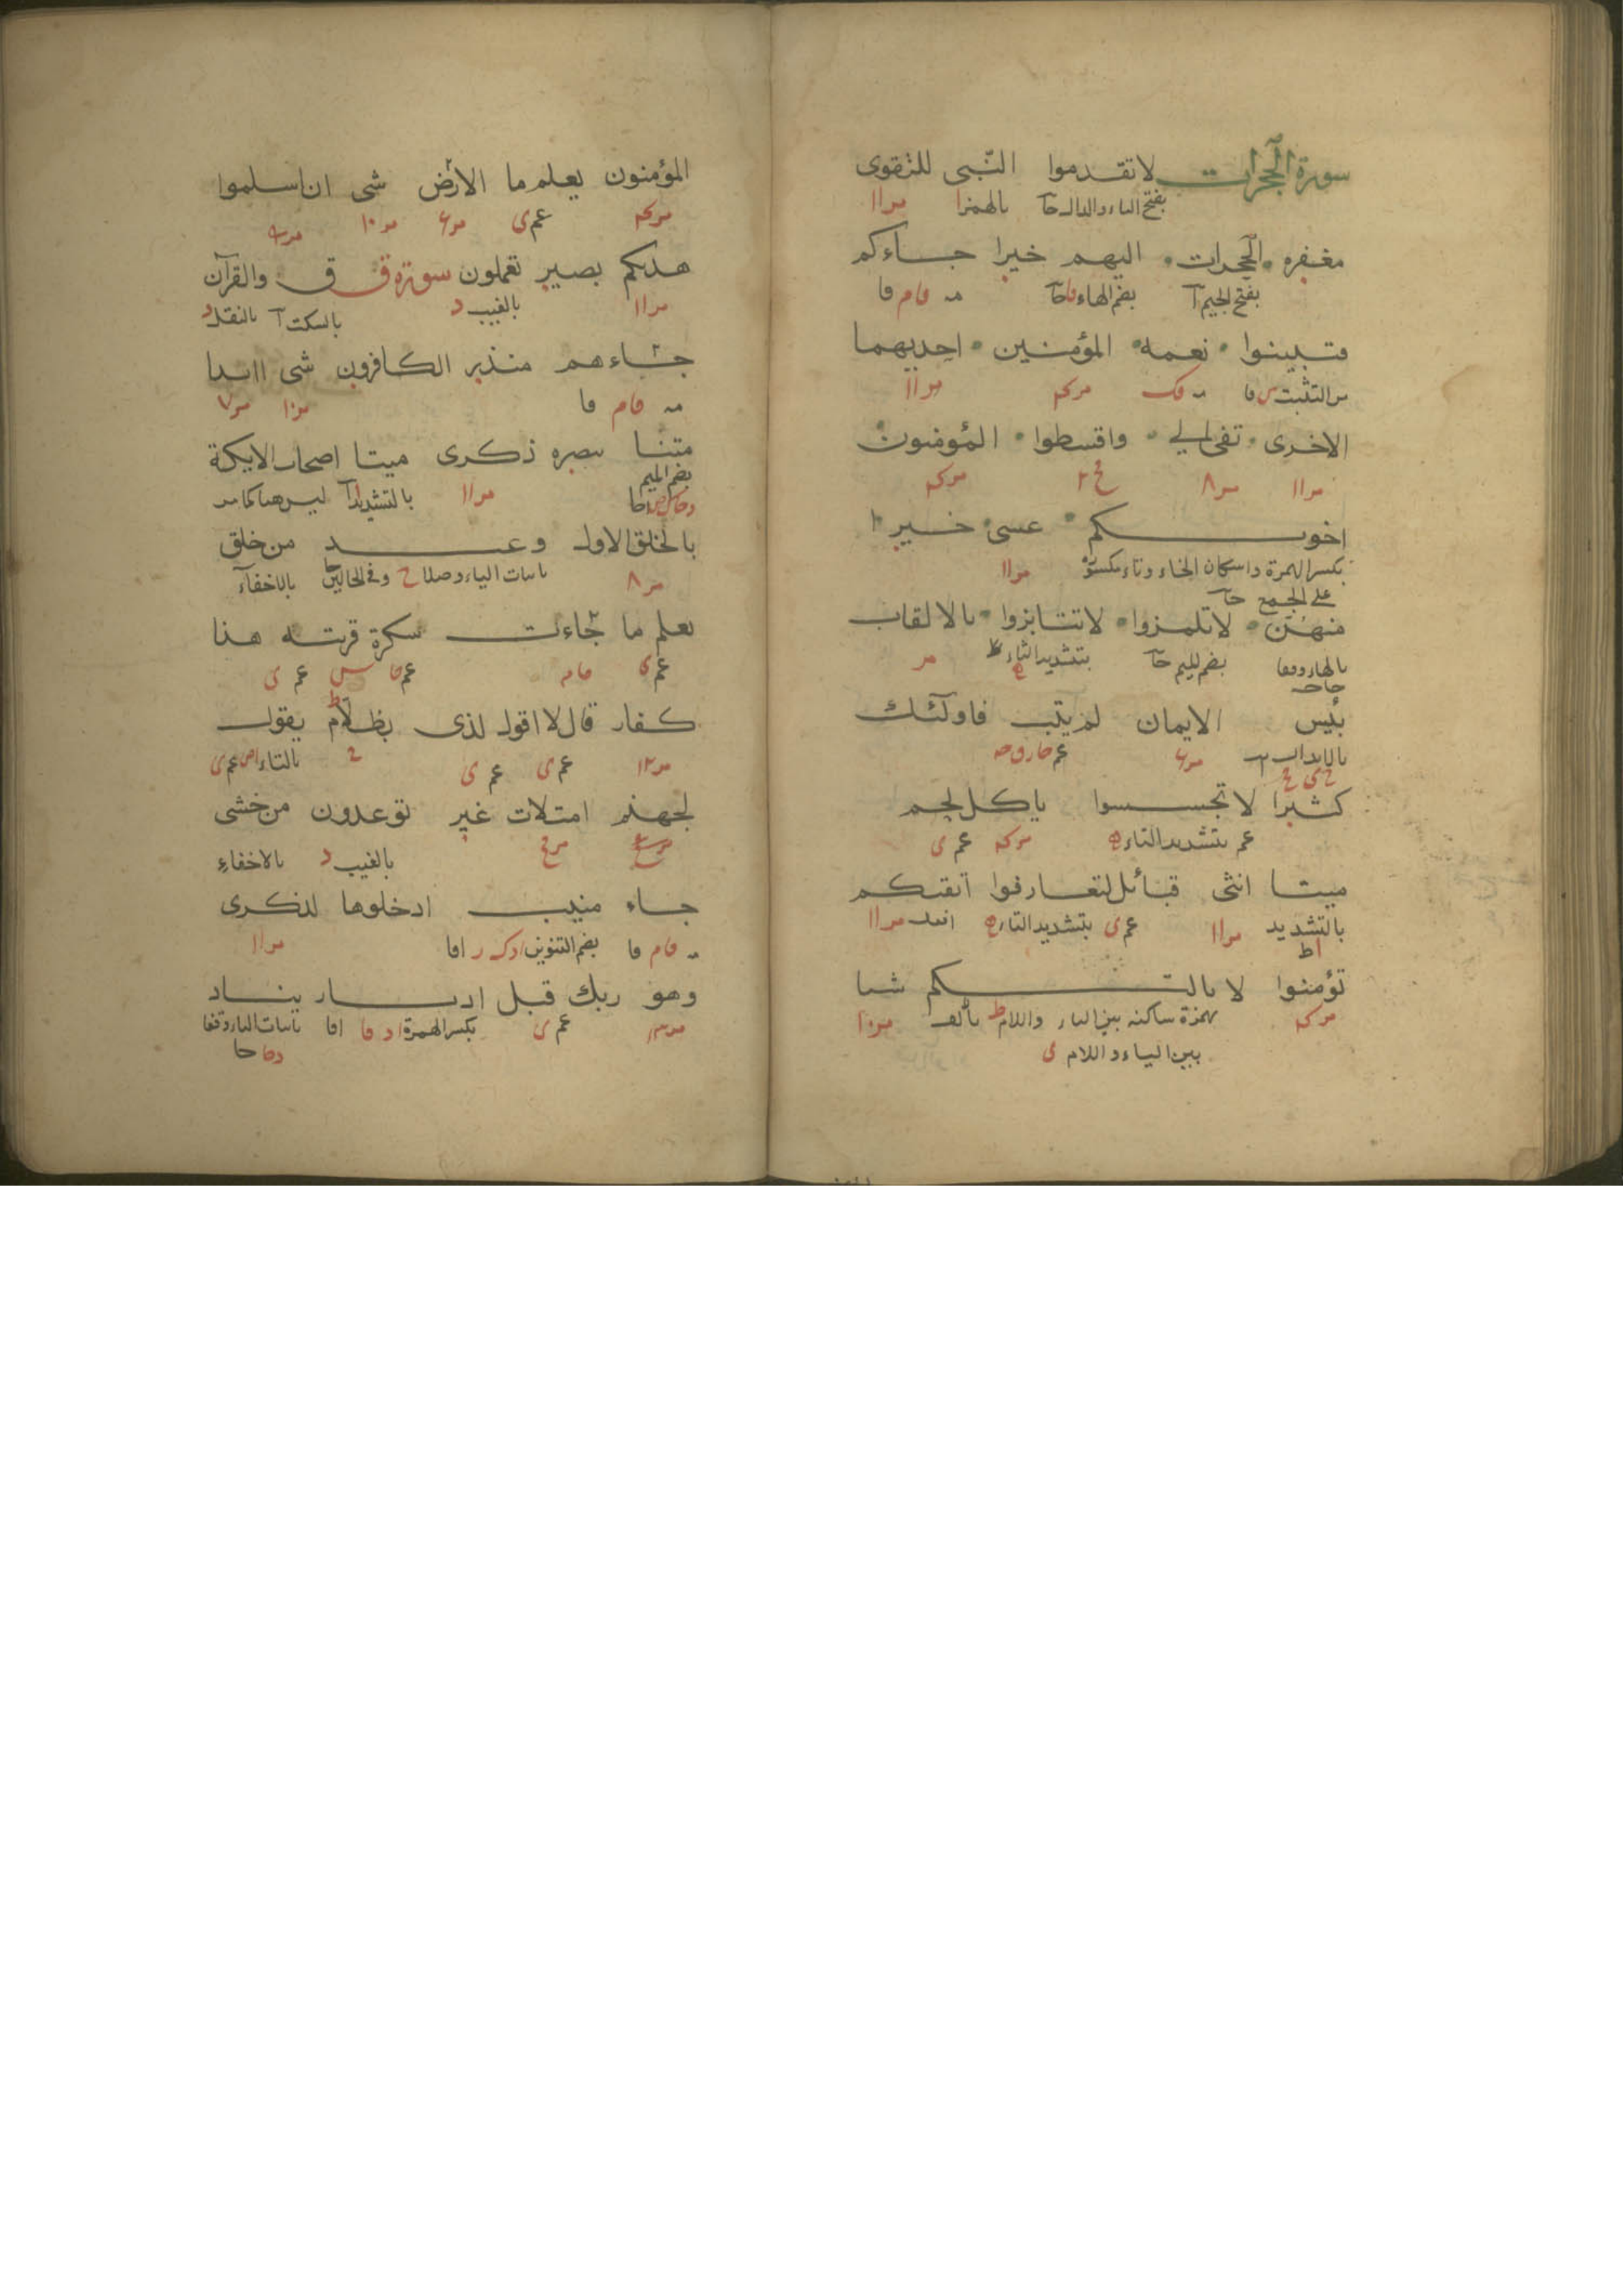 سورة الحجرات لا تقدموا النّبى للتقوى
بفتح التاء والدال حا بالهمز ا مر ١١
مغفره الحجرات اليهم خيرا جاءكم
بفتح الجيم آ بضم الهاء فا حا مه فا م فا
فتبينوا نعمه المؤمنين احديهما
من التثبت فا مر ١١
الاخرى تفى الى واقسطوا المؤمنون
مر ١١ مر ٨
اخوتكم عسى خيرا
بكسر الهمزة واسكان الخاء وتاء مكسورة مر ١١
على الجمع حا
منهن لا تلمزوا لا تنابزوا بالالقاب
بالهاء وقفا بضم الميم حا بتشديد التاء مر
بئس الايمان لم يتب فاولئك
بالابدال
كثيرا لا تجسسوا ياكل لحم
عم بتشديد التاء ه عم ى
ميتا انثى قبائل لتعارفوا اتقىكم
بالتشديد مر ١١ عم ى بتشديد التاء ه مر ١١
اط
تؤمنوا لا يالتكم شيا
بهمزة ساكنة بين الياء واللام ط مر ١٠
بين الياء واللام ى
المؤمنون يعلم ما الارض شى ان اسلموا
عم ى مر ١٠
هديكم بصير تعملون سورة ق ق والقرآن
مر ١١ بالغيب د بالسكت آ بالنقل د
جاءهم منذر الكافرون شى ااىذا
مه فا م فا مر ١٠ مر ٧
متنا تبصره ذكرى ميتا اصحاب الايكة
بضم الميم
مر ١١ بالتشديد ا ليس هنا كما مر
بالخلق الاول وعيد من خلق
مر ٨ باثبات الياء وصلا ج وفى الحالين حا بالاخفاء
نعلم ما جاءت سكرة قرينه هذا
عم ى عم ى
كفار قال لا اقول لدى بظلام يقول
مر ١٢ عم ى عم ى بالتاء
لجهنم امتلات غير توعدون من خشى
بالغيب د بالاخفاء
جاء منيب ادخلوها لذكرى
مه فا م فا بضم التنوين مر ١١
وهو ربك قبل ادبار يناد
عم ى بكسر الهمزة باثبات الياء وقفا